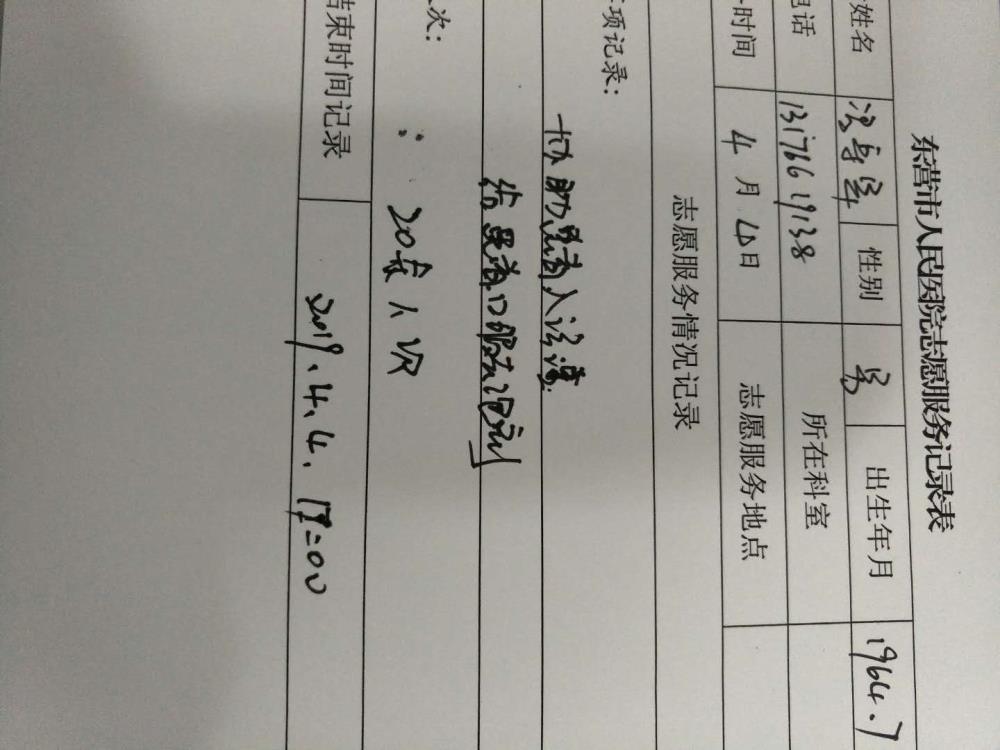 东营市人民医院志愿服务记录表
姓名 性别 男 出生年月 1964.7
电话 13176619138 所在科室
时间 4月4日 志愿服务地点
志愿服务情况记录
事项记录：
协助患者人
给患者口服
次：
20余人次
结束时间记录 2019.4.4. 17:00